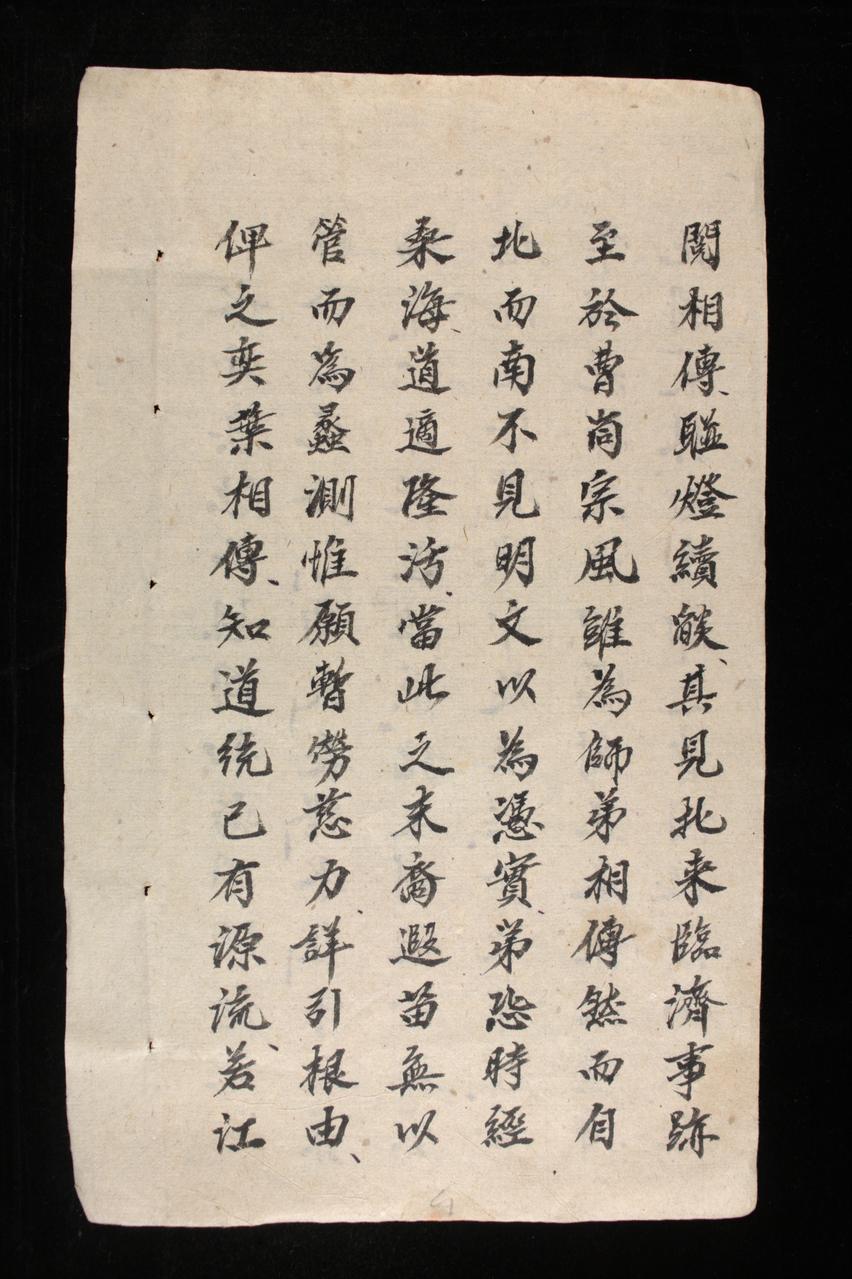 閱相傳、聯燈續燄、其見北来臨濟事跡
至於曹尚宗風雖為師弟相傳然而自
北而南不見明文以為憑實、弟恐時經
桑海、道適隆污、當此之末裔遐苗無以
管而為蠡測惟願暫勞慈力、詳引根由、
俾之奕葉相傳、知道統已有源流、若江